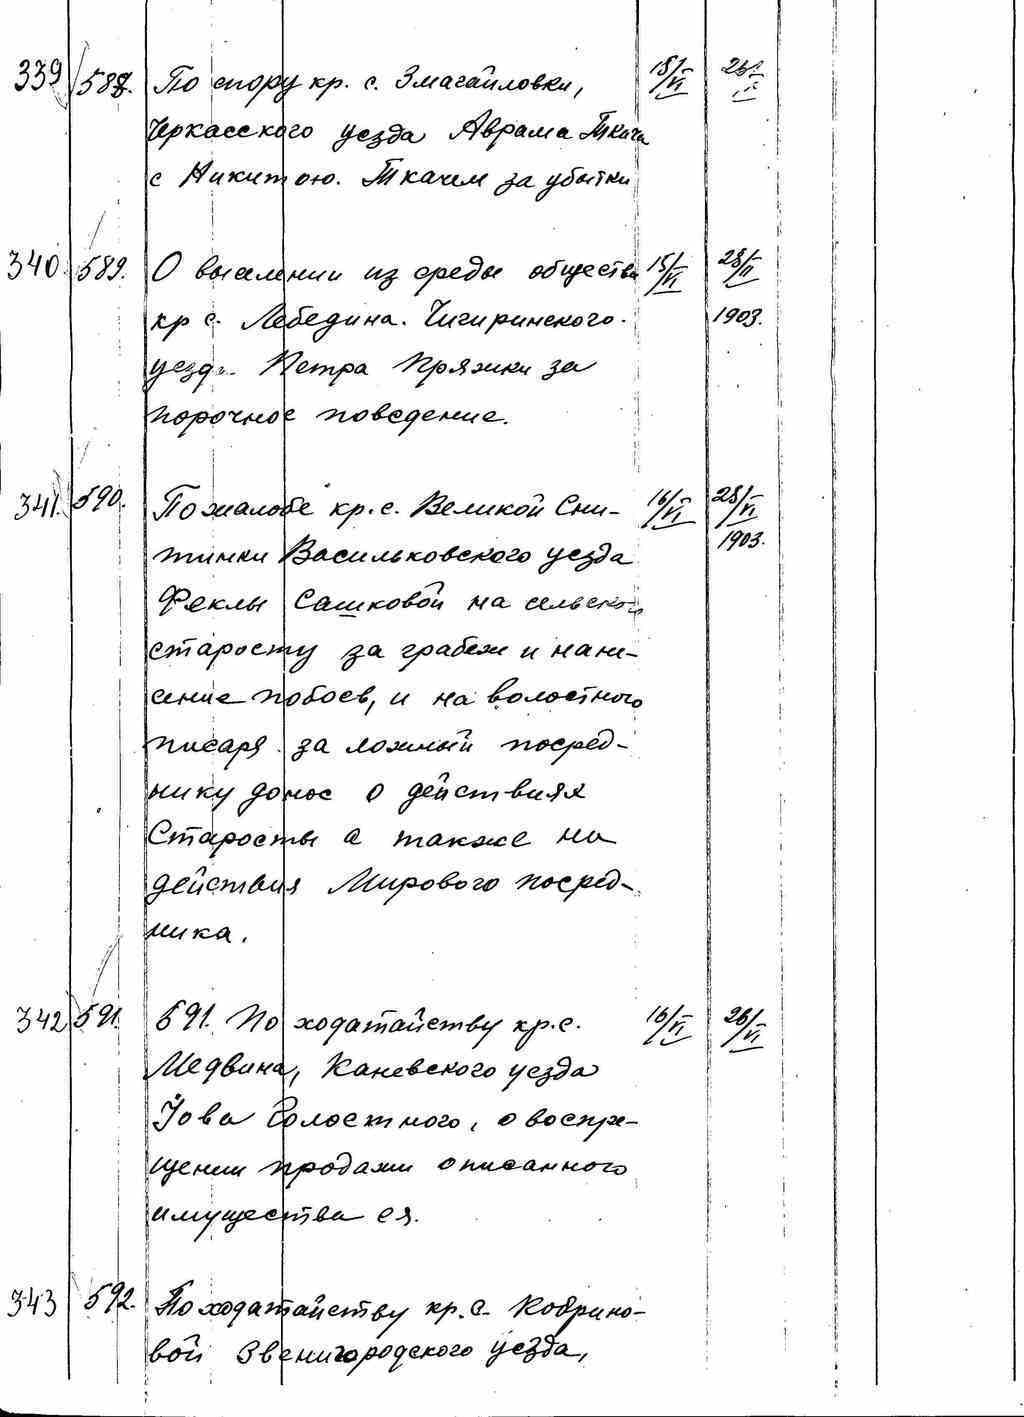 339 588. По спору кр. с. Змагайловки, 18/VI
Черкасского уезда Аврама Ткача
с Никитою. Ткачем за убытки
340. 589. О выселении из среды общества 15/VI 28/II
кр с. Лебедина. Чигиринского. 1903.
Петра Пряжки за
порочное поведение.
341. 590. По жалобе кр. с. Великой Сни- 16/VI 28/VI
тинки Васильковского уезда 1903.
Феклы Сашковой на
старосту за грабеж и нане-
сение побоев, и на волостного
писаря за ложный посред-
нику донос о действиях
Старосты а также на
действия Мирового посред-
ника.
342 591. 591. По ходатайству кр. с. 16/VI 26/VI
Медвина, Каневского уезда
Иова Голостного, о воспре-
щении продажи описанного
имущества ея.
343 592. По ходатайству кр. с. Кобрино-
вой Звенигородского уезда,